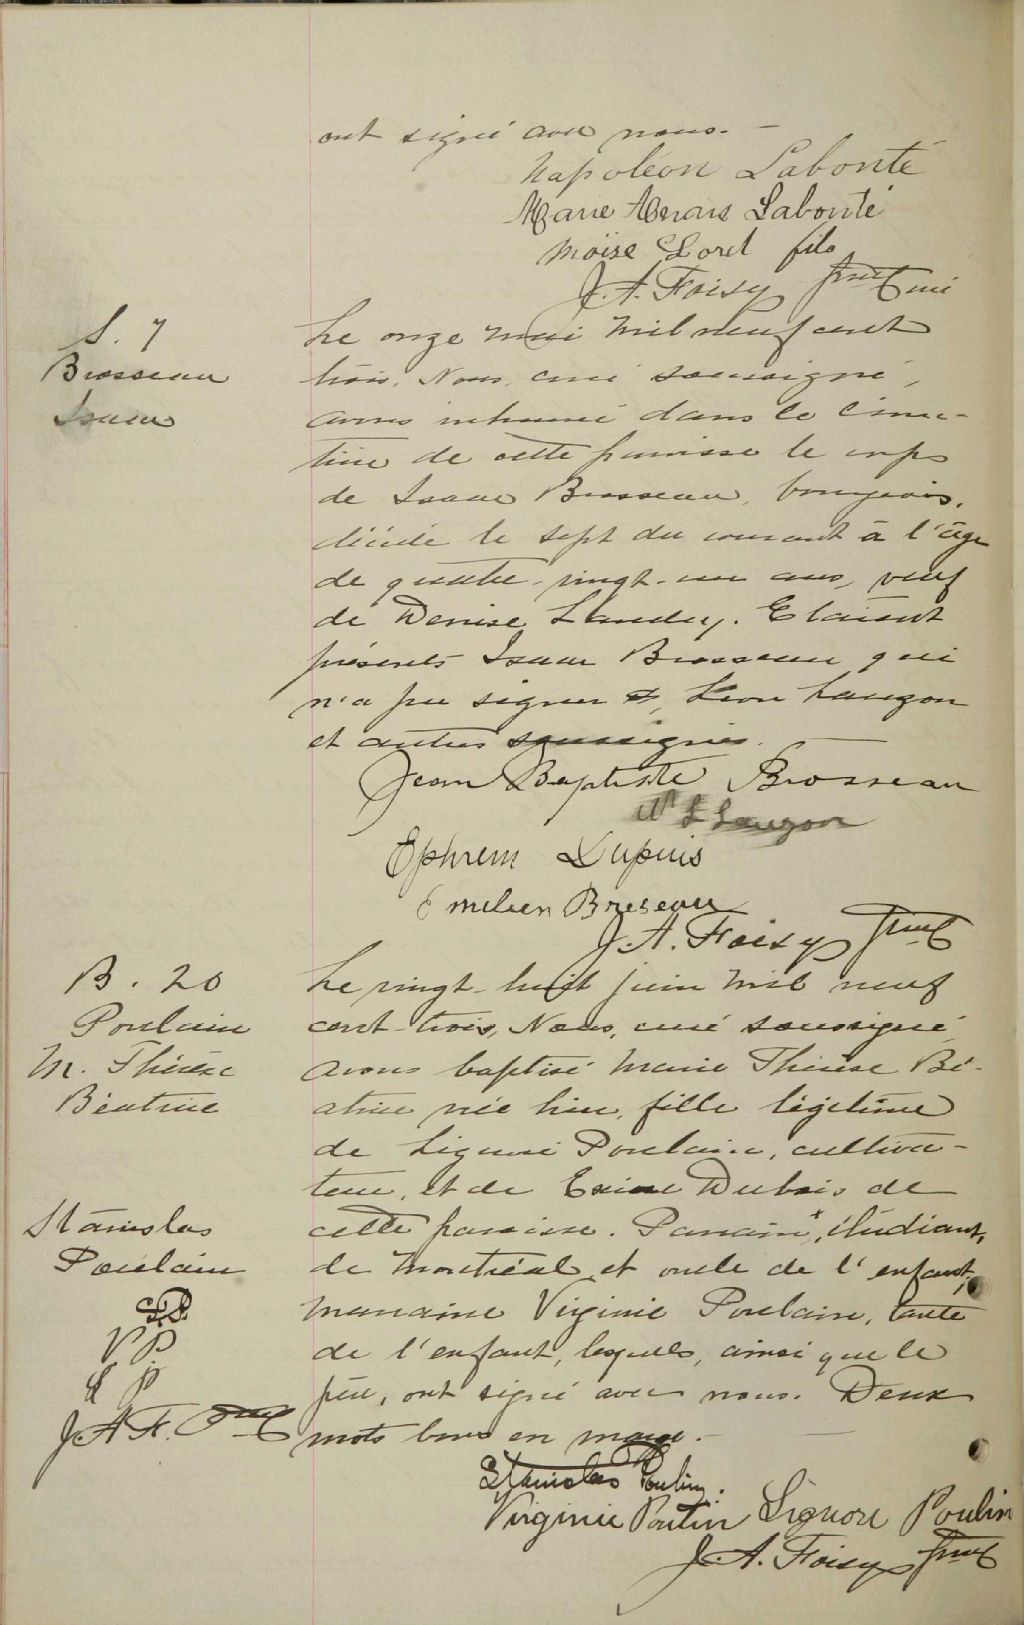 ont signé avec nous. —
Napoléon Labonté
Marie Anaïs Labonté
Moïse Lord fils
J. A. Foisy Ptre
S. 7
Brosseau
Isaac
Le onze mai mil neuf cent
trois, Nous, curé soussigné,
avons inhumé dans le cime-
tière de cette paroisse le corps
de Isaac Brosseau, bourgeois,
décédé le sept du courant à l'âge
de quatre-vingt-un ans, veuf
de Denise Landry. Etaient
présents Isaac Brosseau qui
n'a pu signer et, Léon Lauzon
et autres soussignés. —
Jean Baptiste Brosseau
L Lauzon
Ephrem Dupuis
Emilien Breseau
J. A. Foisy Ptre
B. 20
Poulain
M. Thérèse
Béatrice
Le vingt-huit juin mil neuf
cent-trois, Nous, curé soussigné
avons baptisé Marie Thérèse Bé-
atrice née hier, fille légitime
de Liguori Poulain, cultiva-
teur, et de Exina Dubois de
cette paroisse. Parrain*, étudiant,
de Montréal et oncle de l'enfant,
marraine Virginie Poulain, tante
de l'enfant, lesquels, ainsi que le
père, ont signé avec nous. Deux
mots bons en marge. —
Stanislas
Poulain
S.P.
V P
L P
J A F. Ptre
Stanislas Poulin.
Virginie Poulin Liguori Poulin
J. A. Foisy Ptre